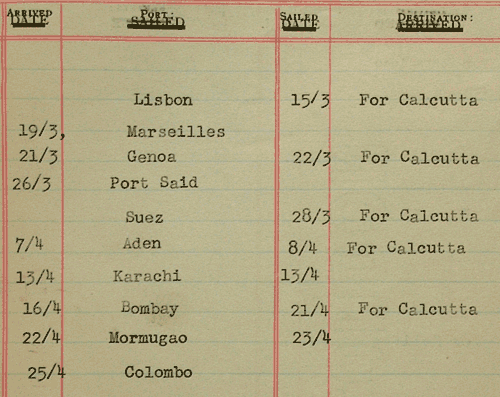 ARRIVED PORT: SAILED DESTINATION:
DATE SAILED DATE ARRIVED
Lisbon 15/3 For Calcutta
19/3, Marseilles
21/3 Genoa 22/3 For Calcutta
26/3 Port Said
Suez 28/3 For Calcutta
7/4 Aden 8/4 For Calcutta
13/4 Karachi 13/4
16/4 Bombay 21/4 For Calcutta
22/4 Mormugao 23/4
25/4 Colombo